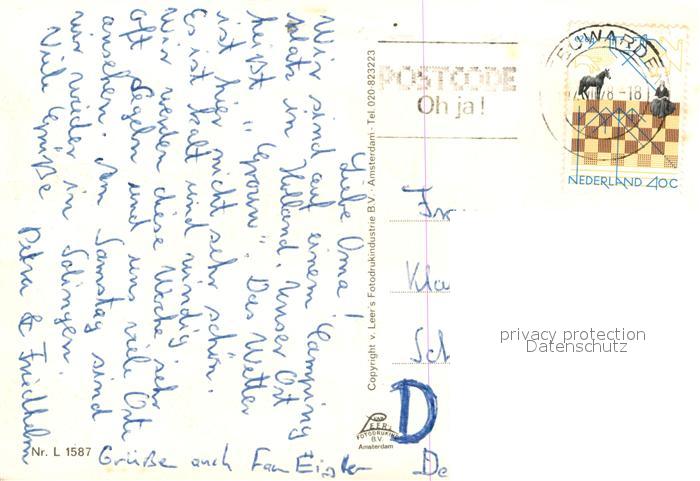 Liebe Oma!
Wir sind auf einem Camping
platz in Holland. Unser Ort
heißt "Grouw". Das Wetter
ist hier nicht sehr schön.
Es ist kalt und windig.
Wir werden diese Woche sehr
oft segeln und uns viele Orte
ansehen. Am Samstag sind
wir wieder in Solingen.
Viele Grüße
Petra & Friedhelm
Grüße auch Frau
Nr. L 1587
Copyright v. Leer's Fotodrukindustrie B.V. - Amsterdam - Tel. 020-823223
POSTCODE
Oh ja!
LEEUWARDEN
NEDERLAND 40C
Fr
Kla
Sch
D
De
van
LEER'S
FOTODRUKIND.
B.V.
Amsterdam
privacy protection
Datenschutz